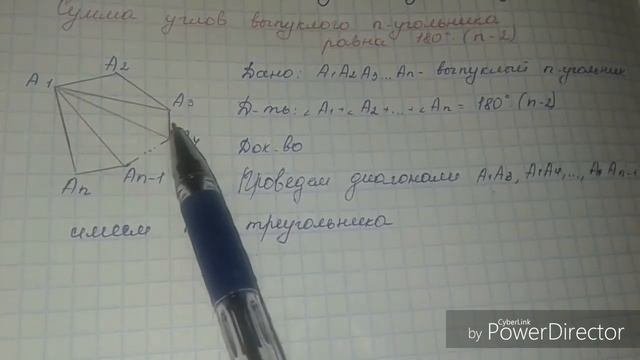 Сумма углов выпуклого n-угольника
равна 180°·(n-2)
A1 A2 A3 An An-1
Дано: A1A2A3...An- выпуклый n-угольник
Д-ть: ∠A1+∠A2+...+∠An = 180°·(n-2)
Док-во
Проведем диагонали A1A3, A1A4,..., A1An-1
имеем треугольника
CyberLink
by PowerDirector